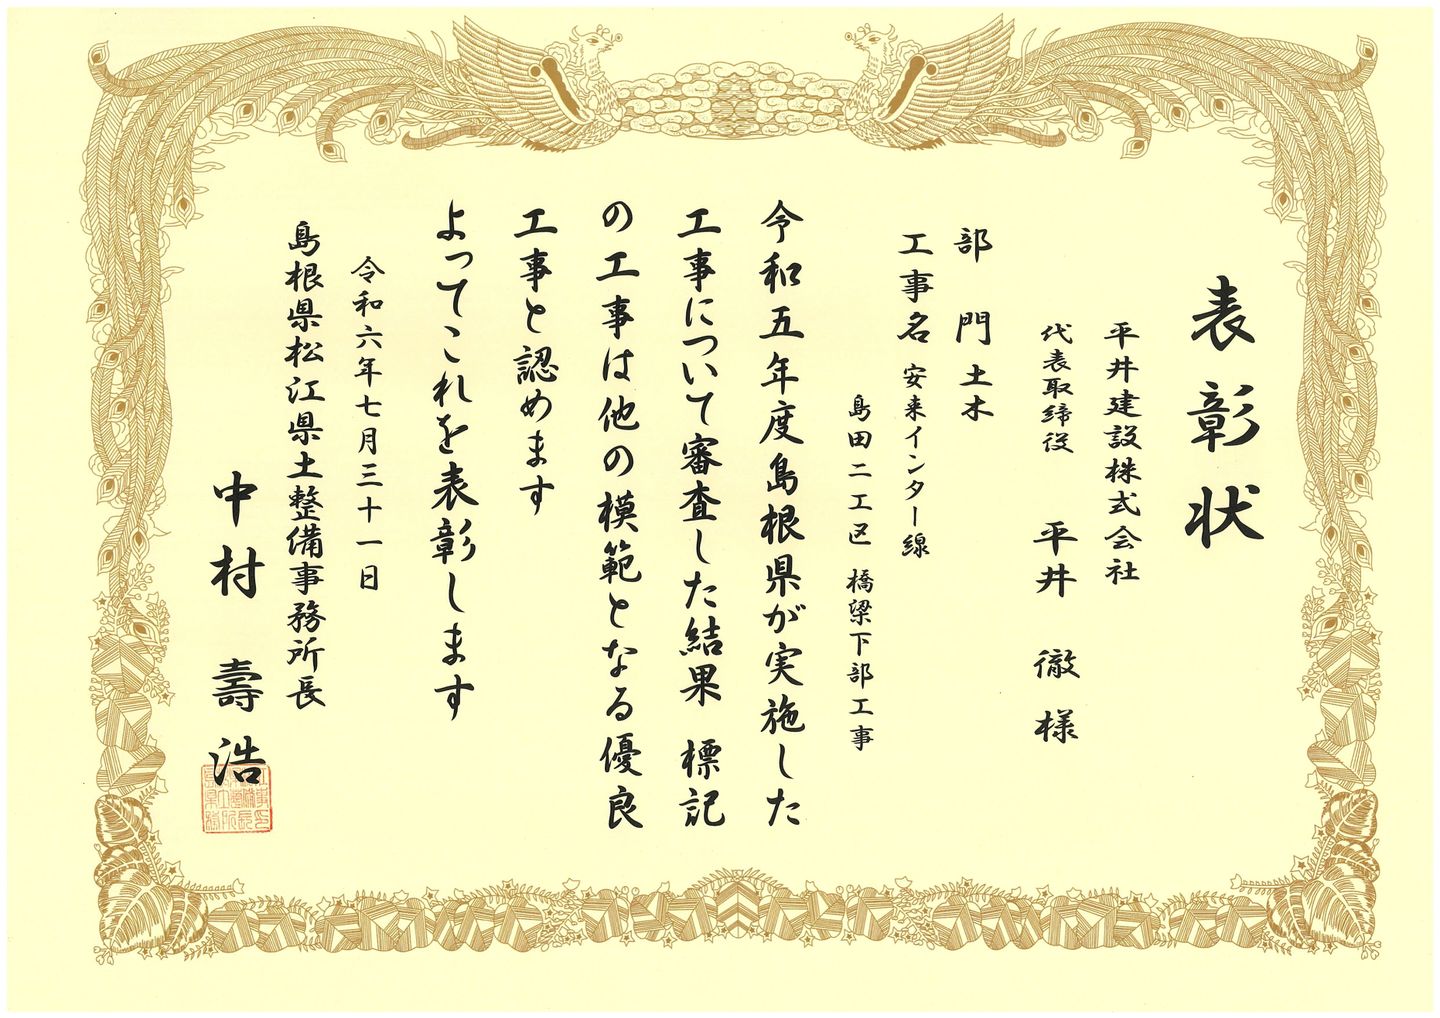 表彰状
平井建設株式会社
代表取締役 平井 徹 様
部 門 土木
工事名 安来インター線
島田二工区 橋梁下部工事
令和五年度島根県が実施した
工事について審査した結果 標記
の工事は他の模範となる優良
工事と認めます
よってこれを表彰します
令和六年七月三十一日
島根県松江県土整備事務所長
中村 壽浩